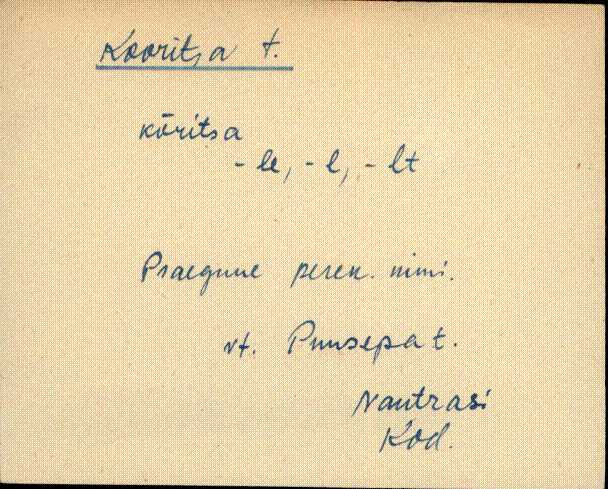 Kooritsa t.
kōritsa
- le, - l, - lt
Praegune peren. nimi.
vt. Puusepa t.
Nautrasi
Kod.